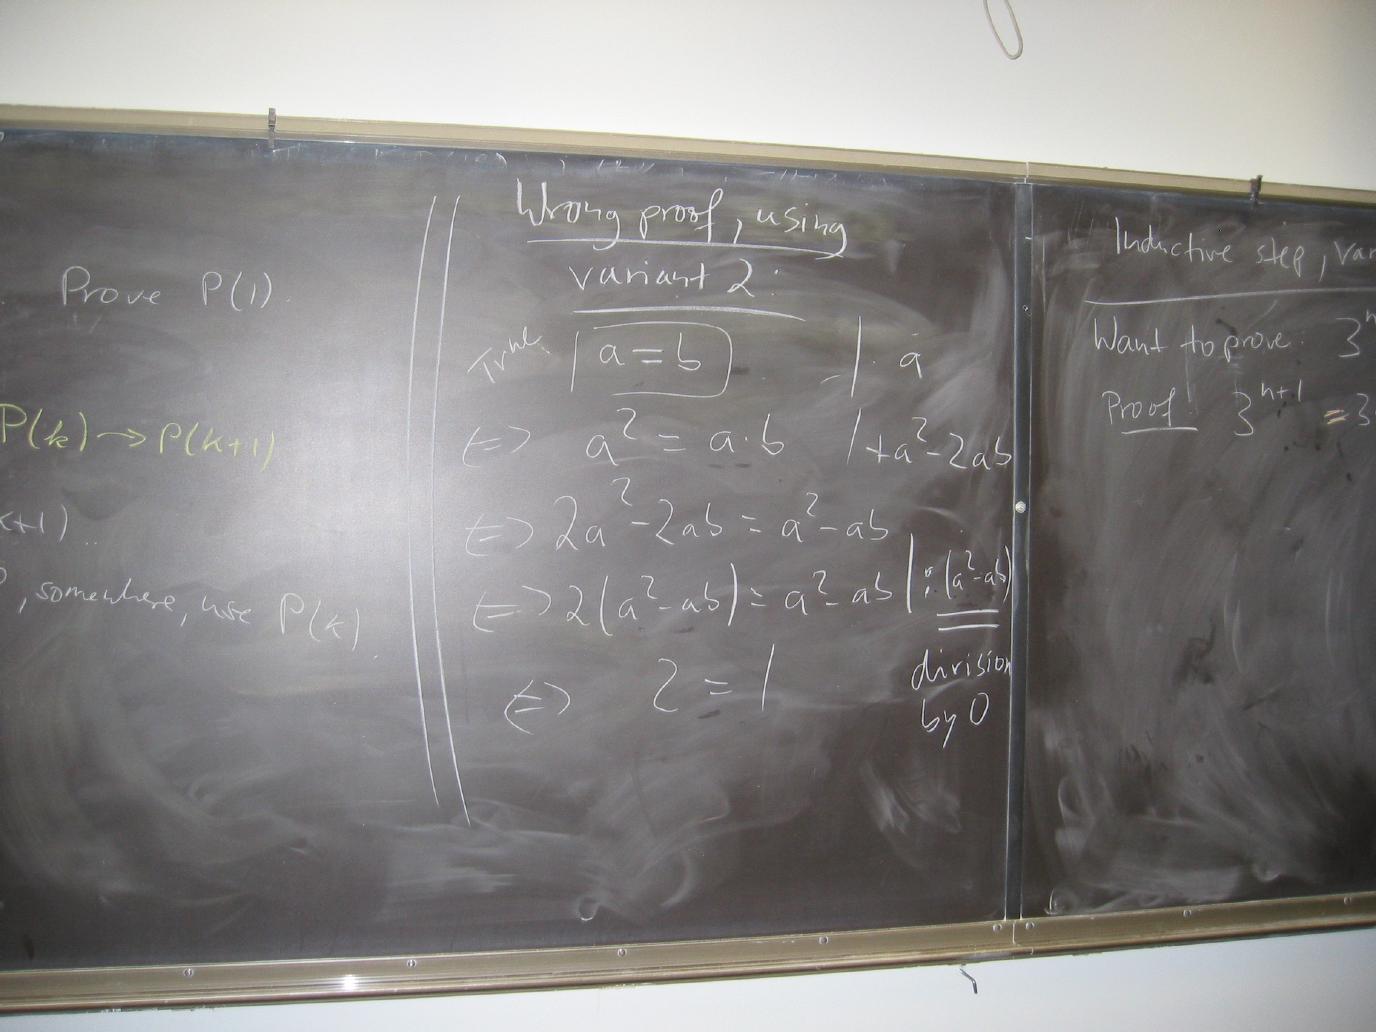 Prove P(1).
P(k) → P(k+1)
k+1)..
, somewhere, use P(k).
Wrong proof, using
variant 2:
True a = b | · a
<=> a² = a·b | +a² - 2ab
<=> 2a² - 2ab = a² - ab
<=> 2(a² - ab) = a² - ab | : (a² - ab)
<=> 2 = 1
division
by 0
Inductive step, var
Want to prove: 3ⁿ
Proof: 3ⁿ⁺¹ = 3